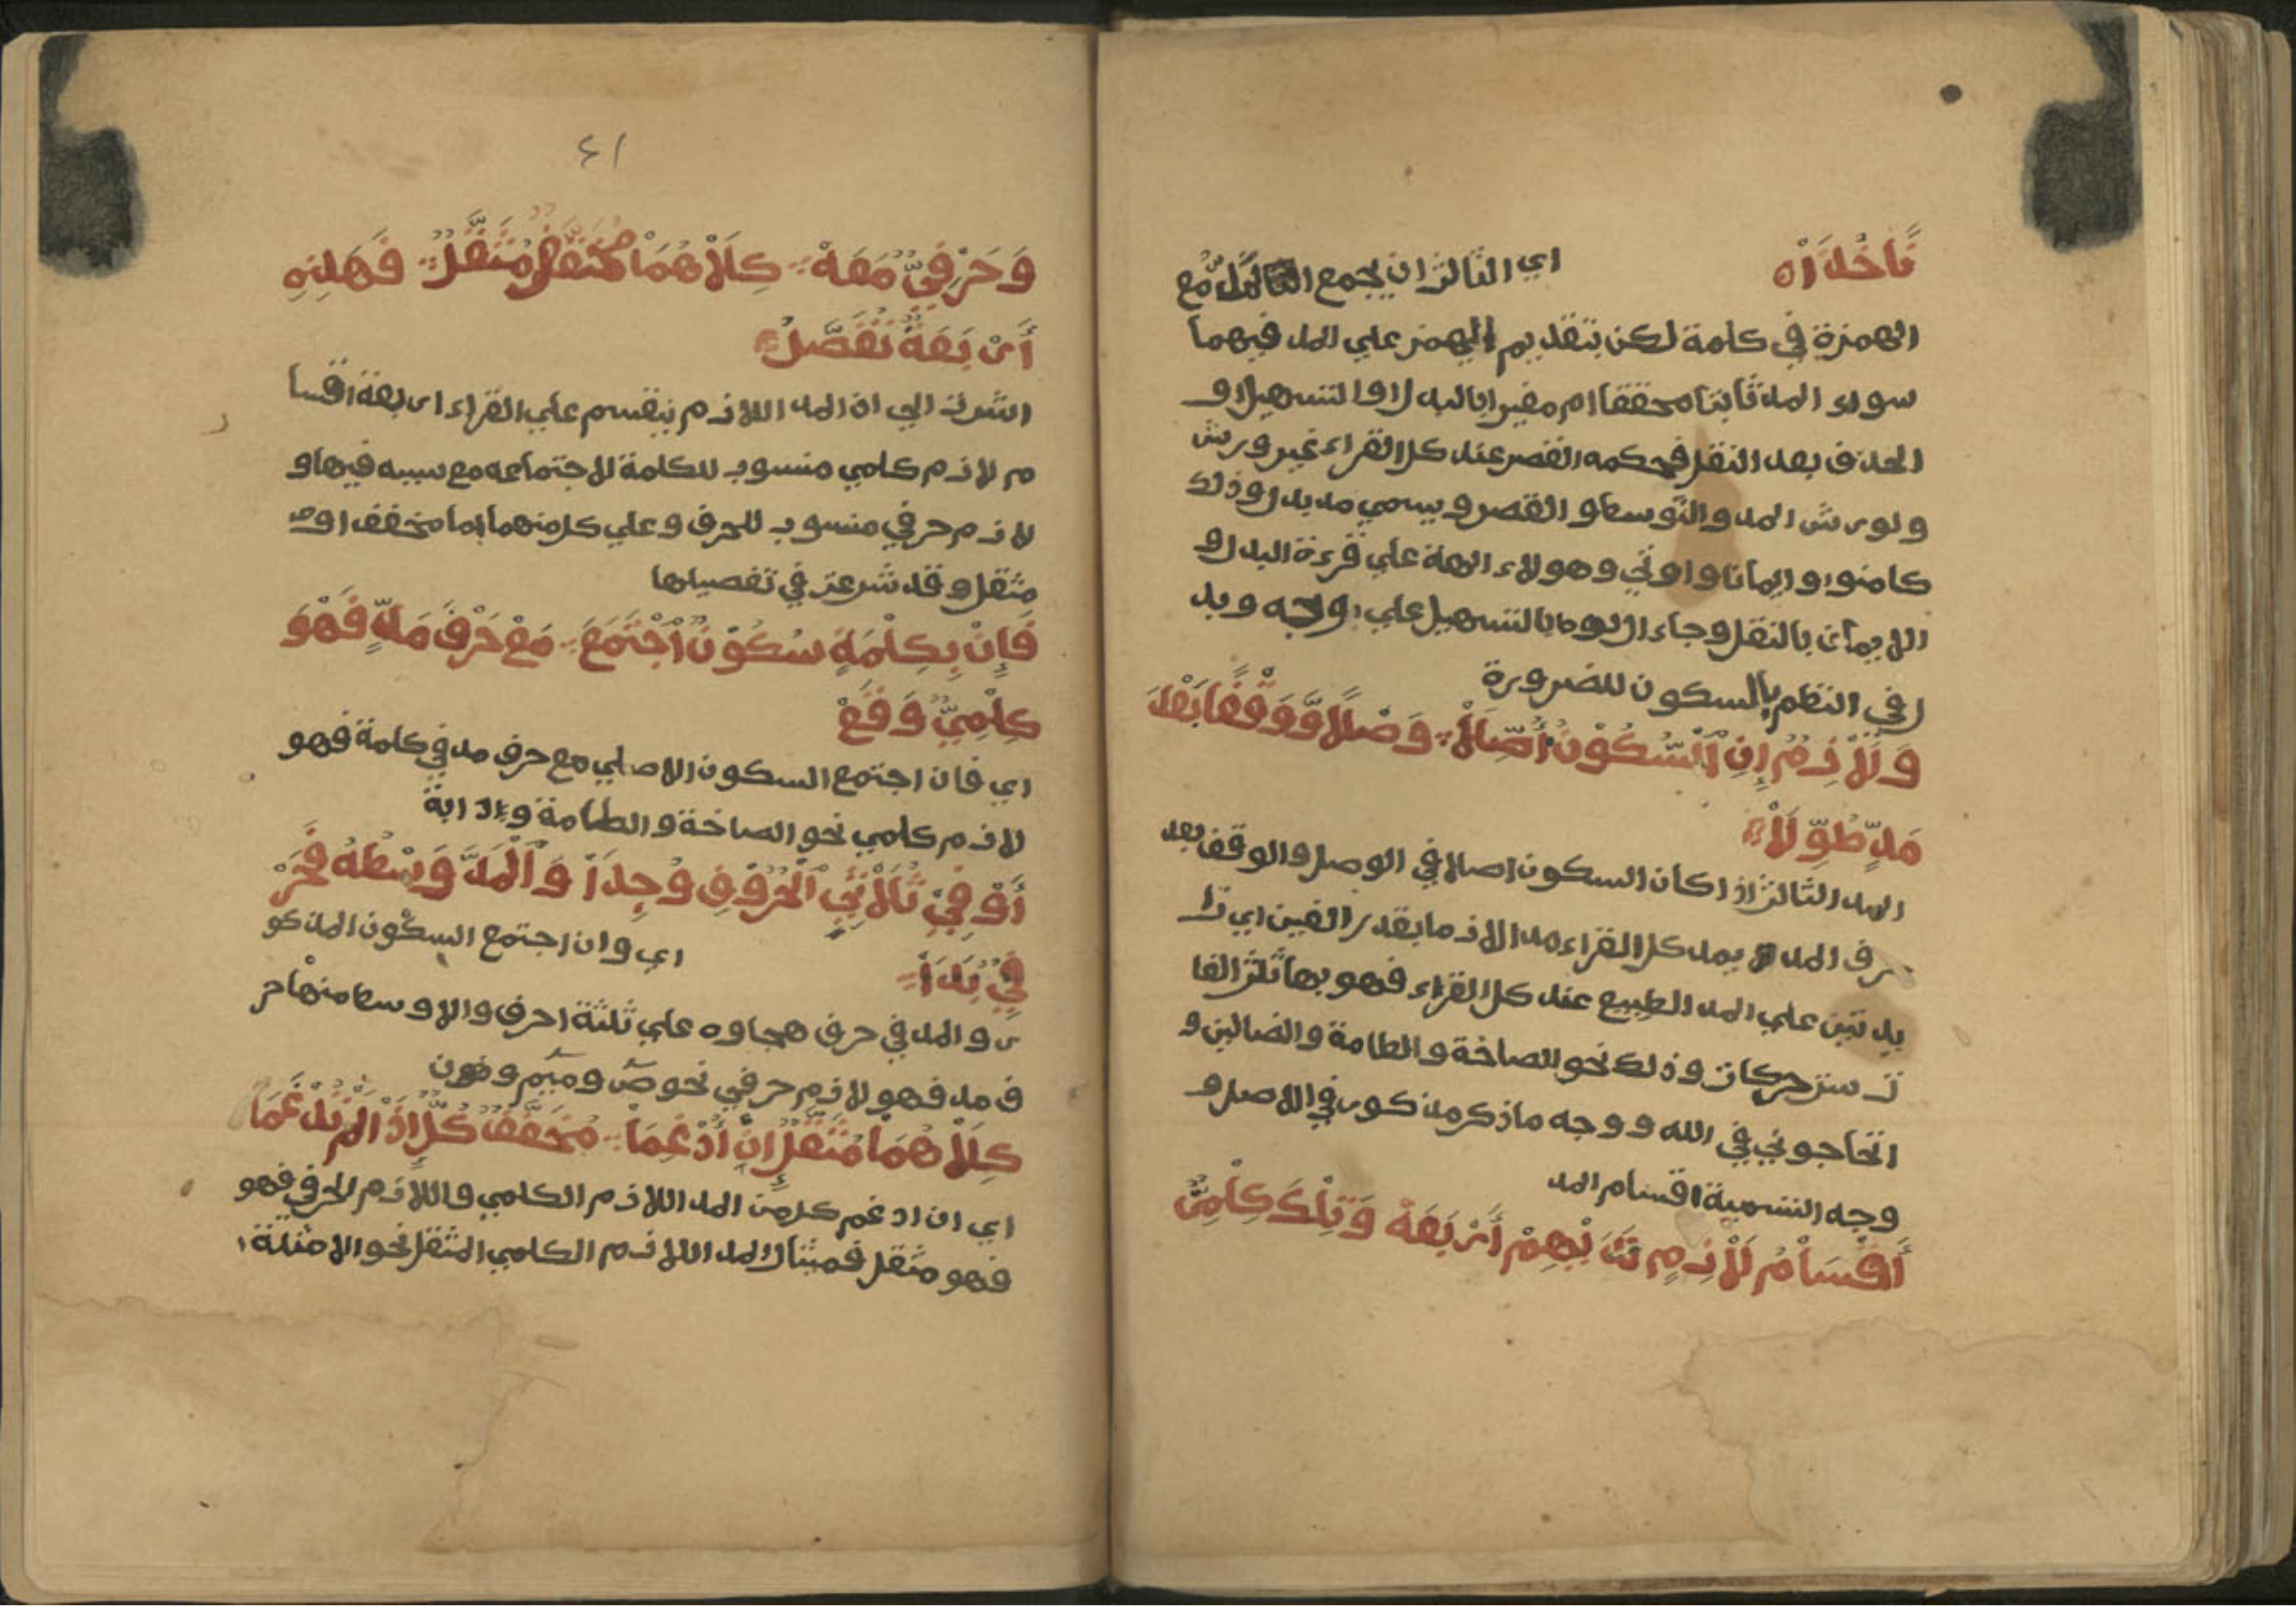 نًا خُذَاْ اه اي الثالث ان يجمع المد مع
الهمزة في كلمة لكن بتقديم الهمز علي المد فيهما
سواء المد ثابتا محققا ام مغيرا بالبدل او التسهيل او
الحذف بعد النقل فحكمه القصر عند كل القراء غير ورش
و لورش المد والتوسط و القصر و يسمي مد بدل و ذلك
كامنوا و ايمانا و اوتي و هولاء الهة علي قرءة البدل و
الايمان بالنقل و جاء ال لوط بالتسهيل علي وجه و بد
ل في النظم بالسكون للضرورة
وَلَاْزِمٌ اِنِ ٱلسُّكُوْنُ أُصِّلَاْ وَصْلًا وَّوَقْفًا بَعْدَ
مَدٍّ طُوِّلَاْ
المد الثالث اذا كان السكون اصلا في الوصل و الوقف بعد
حرف المد يمد كل القراء مد الازما بقدر الفين اي زا
يدتين علي المد الطبيع عند كل القراء فهو بها ثلث الفا
ت ست حركات و ذلك نحو الصاخة و الطامة و الضالين و
اتحاجوني في الله و وجه ما ذكر مذكور في الاصل و
وجه التسمية اقسام المد
أَقْسَاْمُ لَاْزِمٍ لَدَيْهِمْ أَرْبَعَهْ وَتِلْكَ كِلْمِيٌّ
٤١
وَحَرْفِيٌّ مَعَهْ كِلَاْهُمَاْ مُخَفَّفٌ مُثَقَّلُ فَهَذِهِ
أَرْبَعَةٌ تُفَصَّلُ
اشرت الي ان المد اللازم ينقسم علي القراء اربعة اقسا
م لازم كلمي منسوب للكلمة لاجتماعه مع سببه فيها و
لازم حرفي منسوب للحرف و علي كل منهما اما مخفف او م
مثقل و قد شرعت في تفصيلها
فَإِنْ بِكِلْمَةٍ سُكُوْنٌ ٱجْتَمَعَ مَعْ حَرْفِ مَدٍّ فَهْوَ
كِلْمِيٌّ وَقَعْ
اي فان اجتمع السكون الاصلي مع حرف مد في كلمة فهو
لازم كلمي نحو الصاخة و الطامة و دابة
أَوْ فِيْ ثُلَاْثِيِّ ٱلْحُرُوْفِ وُجِدَاْ وَٱلْمَدُّ وَسْطُهُ فَحَرْ
فِيٌّ بَدَاْ اي و ان اجتمع السكون المذكو
ر و المد في حرف هجاوه علي ثلثة احرف و الاوسط منها حر
ف مد فهو لازم حرفي نحو ص و ميم و نون
كِلَاْهُمَاْ مُثَقَّلٌ اِنْ أُدْغِمَاْ مُخَفَّفٌ كُلٌّ اِذَاْ لَمْ يُدْغَمَا
اي ان ادغم كل من المد اللازم الكلمي و اللازم الحرفي فهو
فهو مثقل فمثال المد اللازم الكلمي المثقل نحو الامثلة ا